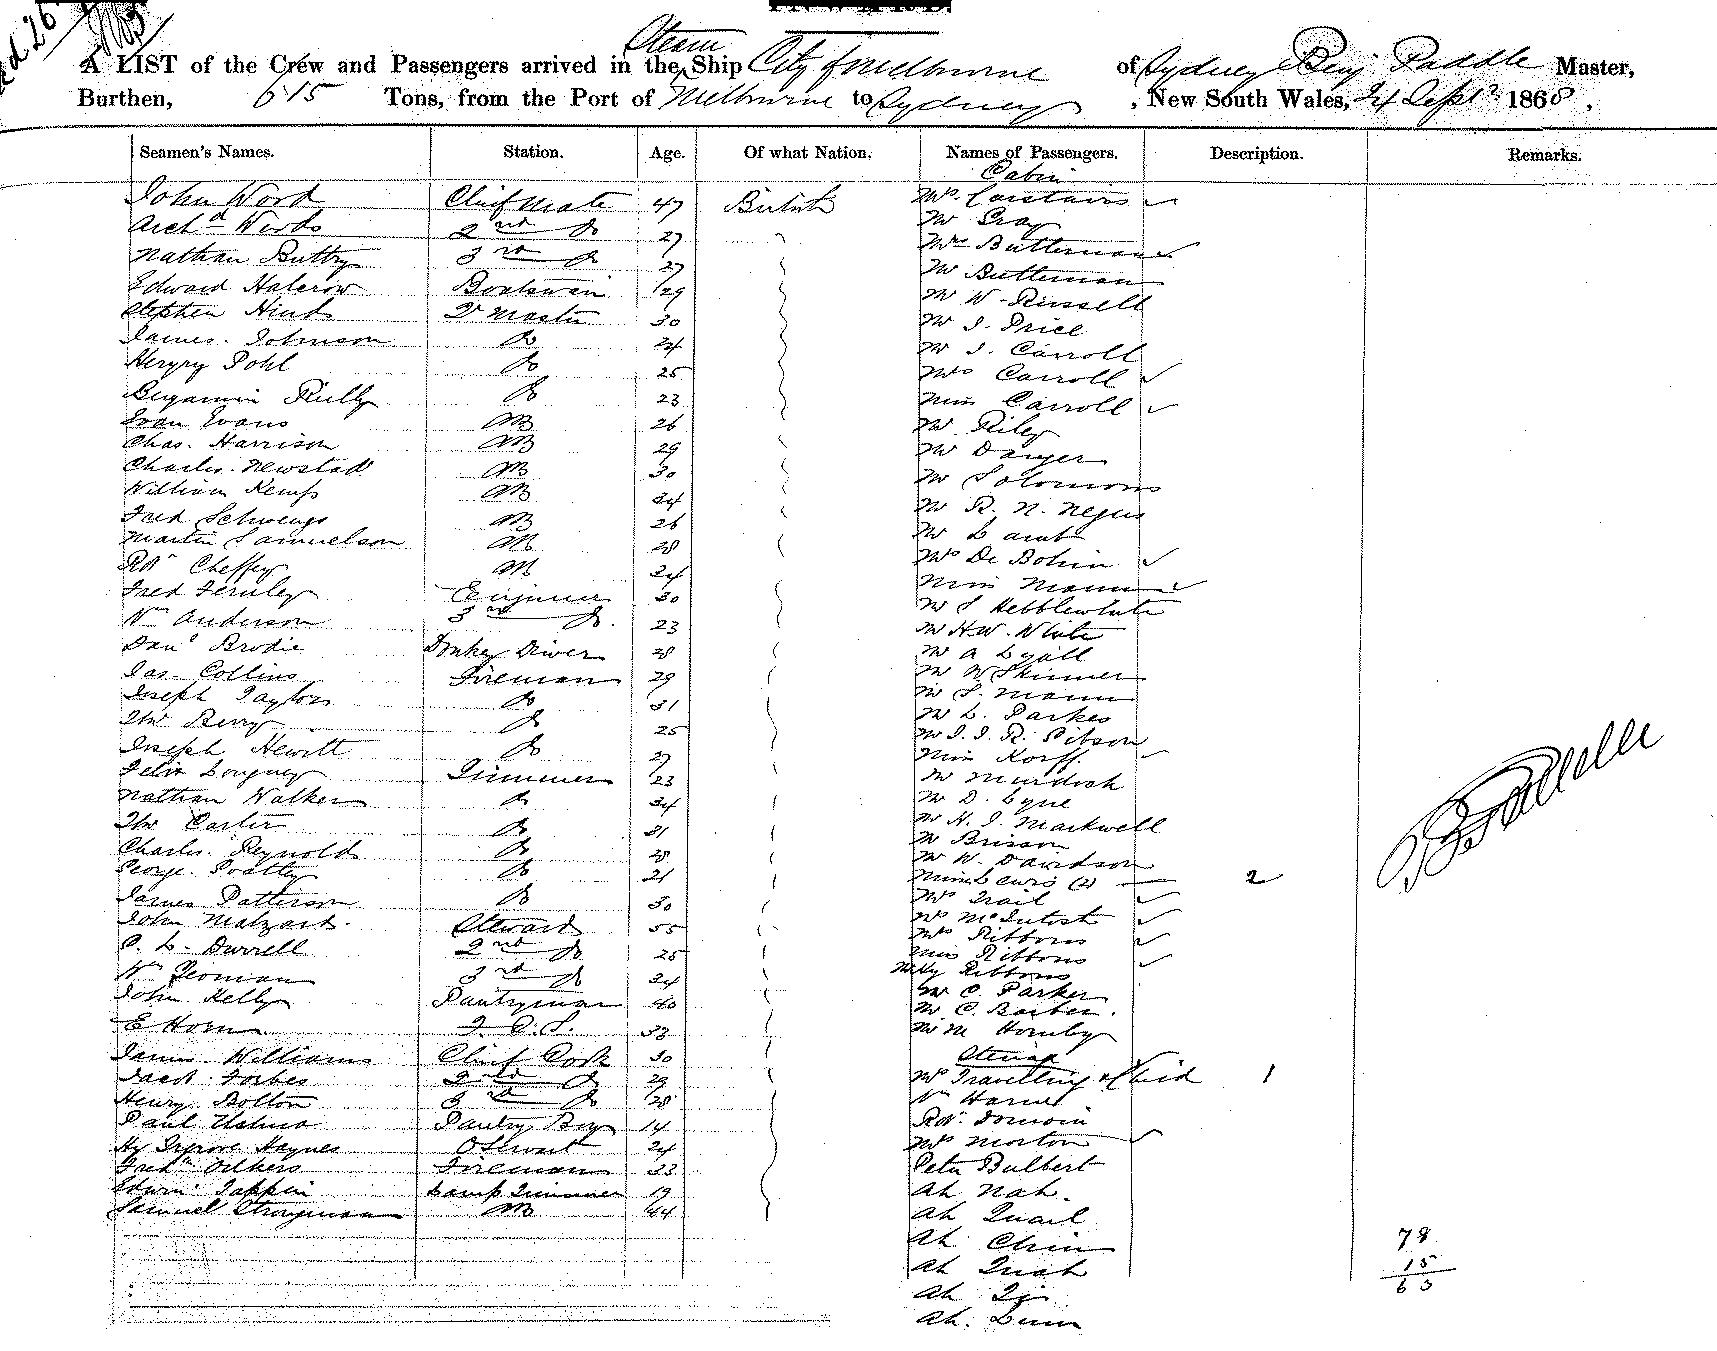 Steam
A LIST of the Crew and Passengers arrived in the Ship City of Melbourne of Sydney Benj Paddle Master,
Burthen, 615 Tons, from the Port of Melbourne to Sydney, New South Wales, 24 Sept 1868.
Seamen's Names. Station. Age. Of what Nation. Names of Passengers. Description. Remarks.
Cabin
John Wood Chief Mate 47 British Mrs Carstairs
Archd Woods 2nd Do 27 Mr Gray
Nathan Buttry 3rd Do 27 Mrs Butterman
Edward Halcrow Boatswain 29 Mr Butterman
Stephen Hind Qr Master 30 Mr W Russell
James Johnson Do 24 Mr J. Price
Henry Pohl Do 25 Mr J. Carroll
Mrs Carroll
Benjamin Reilly Do 23 Miss Carroll
Evan Evans AB 26 Mr Riley
Chas. Harrison AB 29 Mr Danger
Charles Newstad AB 30 Mr Solomons
William Kemp AB 24 Mr R. N. Negus
Fred Schwengs AB 26 Mr Lamb
Martin Samuelson AB 28 Mrs De Bohin
Robt Cheffey AB 24 Miss Mann
Fred Fernley Engineer 30 Mr S Hebblewhite
Wm Anderson 3rd Do. 23 Mr H W. White
Danl Brodie Donkey Driver 28 Mr A Lyall
Jas Collins Fireman 29 Mr W Skinner
Joseph Taylor Do 31 Mr S. Mann
Mr L. Parkes
Thos Berry Do 25 Mr J. J. R. Gibson
Joseph Hewitt Do 27 Miss Korff
Felix Trimmer 23 Mr Murdoch
Nathan Walker Do 24 Mr D. Lyne
Thos Carter Do 21 Mr H. J. Markwell
Mr Brison
Charles Reynolds Do 28 Mr W. Davidson
George Do 21 Misses Lewis (2) 2
James Patterson Do 30 Mrs Trail
John Steward 55 Mrs McIntosh
Mrs Ribbons
C. L. Durrell 2nd Do 25 Miss Ribbons
Wm Yeoman 3rd Do 24 Ribbons
John Kelly Pantryman 40 Mr C. Parker
Mr C. Barber.
E Horn F. C. S. 33 Mr M Hornby
James Williams Chief Cook 30 Steerage
Jacob Forbes 2nd Do 29 Mrs Travelling & Child 1
Henry Bolton 3rd Do 28 Wm
Paul Pantry Boy 14 Robt
Hy Haynes O Steward 24 Mrs Morton
Fredk Fireman 33 Peter Bulbert
Edwin Tappin Lamp Trimmer 19 Ah Nah.
Samuel Strongman AB 44 Ah Quail
Ah Chin
Ah
Ah
Ah.
78
15
63